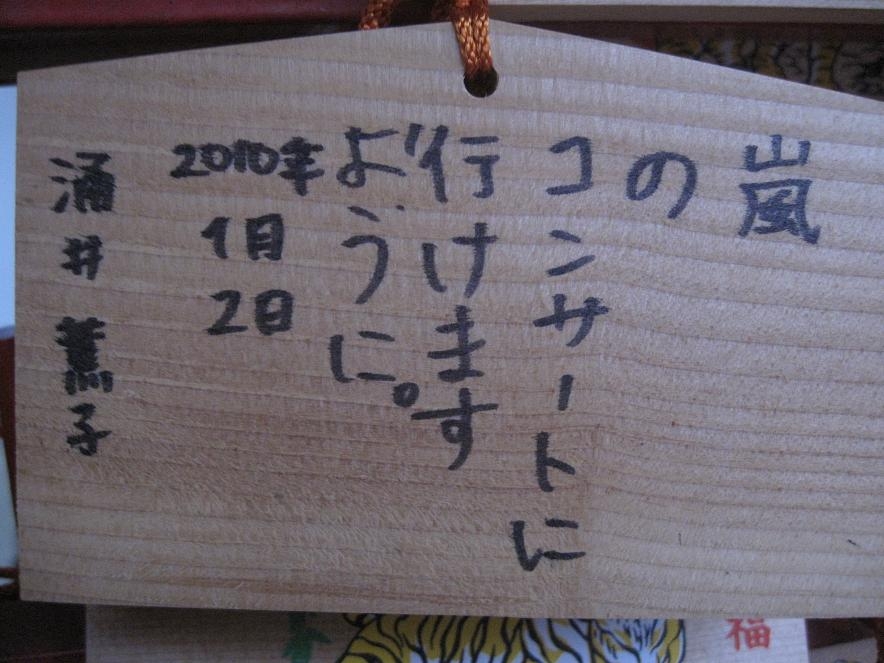 嵐
の
コンサートに
行けます
ように。
2010年
1月
2日
涌井 薫子
福